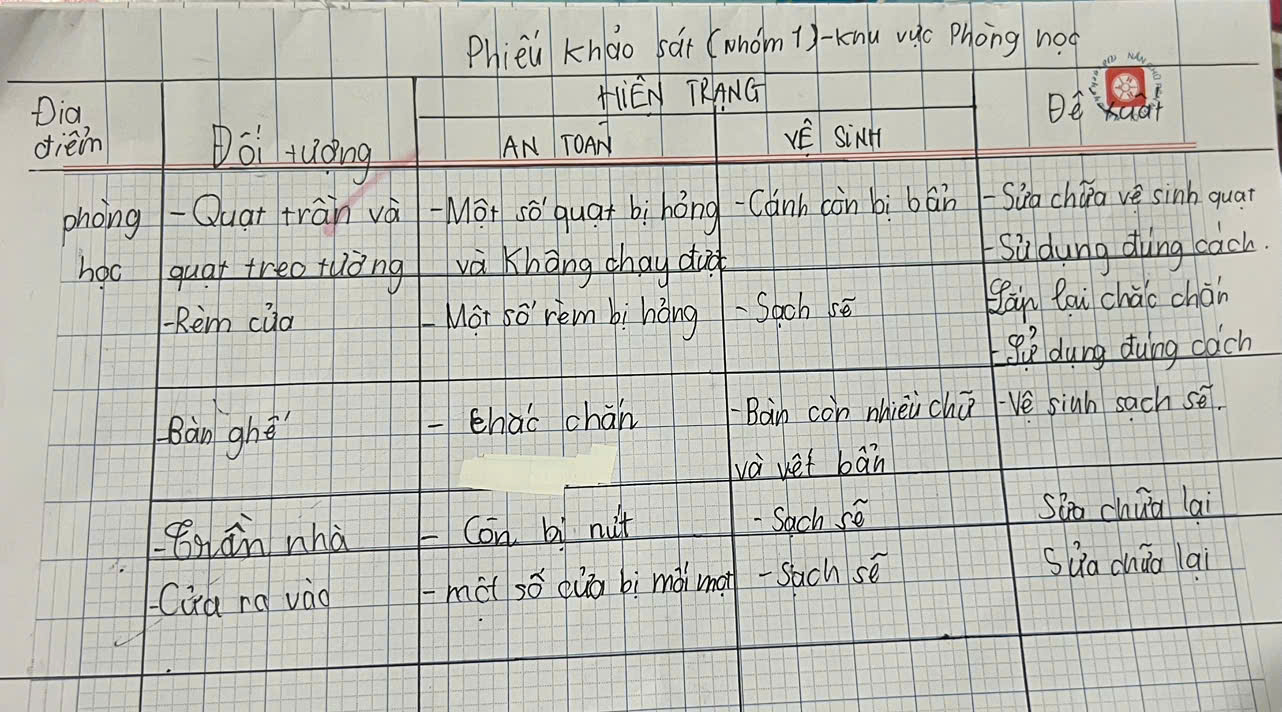 Phiếu khảo sát (Nhóm 1)-khu vực Phòng học
HIỆN TRẠNG
Địa điểm
Đối tượng
AN TOÀN
VỆ SINH
Đề xuất
phòng học
-Quạt trần và
quạt treo tường
-Một số quạt bị hỏng
và Không chạy được
-Cánh còn bị bẩn
-Sửa chữa vệ sinh quạt
-Sử dụng đúng cách.
-Rèm cửa
-Một số rèm bị hỏng
-Sạch sẽ
Lắp lại chắc chắn
-Sử dụng đúng cách
-Bàn ghế
- chắc chắn
-Bàn còn nhiều chữ
và vết bẩn
-Vệ sinh sạch sẽ.
-Trần nhà
- Còn bị nứt
- Sạch sẽ
Sửa chữa lại
-Cửa ra vào
- một số cửa bị mối mọt
- Sạch sẽ
Sửa chữa lại